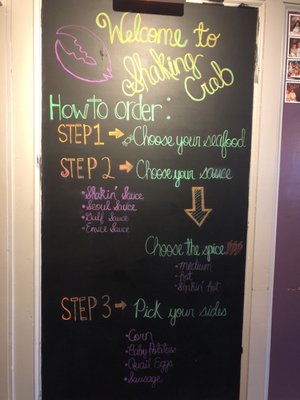 Welcome to
Shaking
Crab
How to order:
STEP 1 Choose your seafood
STEP 2 Choose your sauce
• Shakin' Sauce
• Seoul Sauce
• Gulf Sauce
• Ernie Sauce
Choose the spice
• Medium
• Hot
STEP 3 Pick your sides
• Corn
• Baby Potatoes
• Quail Eggs
• Sausage